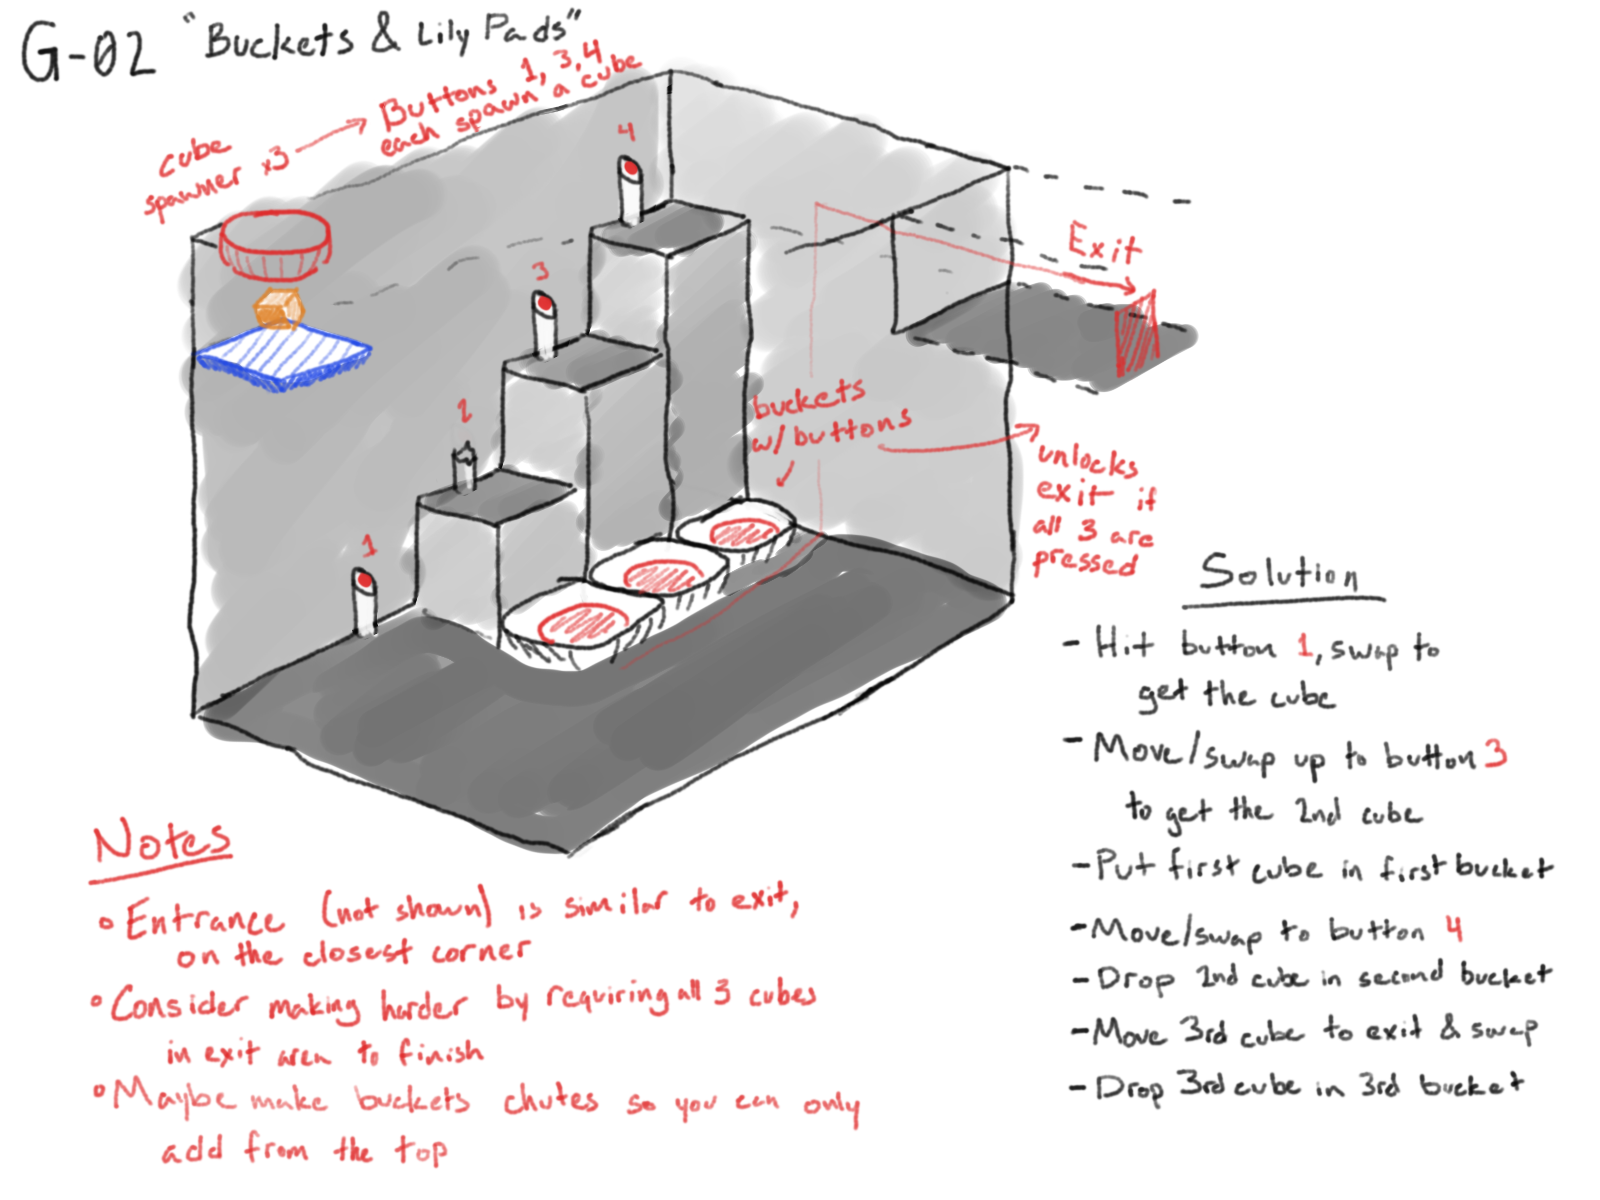 G-02 "Buckets & Lily Pads"
cube
spawner x3
Buttons 1, 3, 4
each spawn a cube
4
3
2
1
Exit
buckets
w/ buttons
unlocks
exit if
all 3 are
pressed
Solution
- Hit button 1, swap to
get the cube
- Move/swap up to button 3
to get the 2nd cube
- Put first cube in first bucket
- Move/swap to button 4
- Drop 2nd cube in second bucket
- Move 3rd cube to exit & swap
- Drop 3rd cube in 3rd bucket
Notes
• Entrance (not shown) is similar to exit,
on the closest corner
• Consider making harder by requiring all 3 cubes
in exit area to finish
• Maybe make buckets chutes so you can only
add from the top